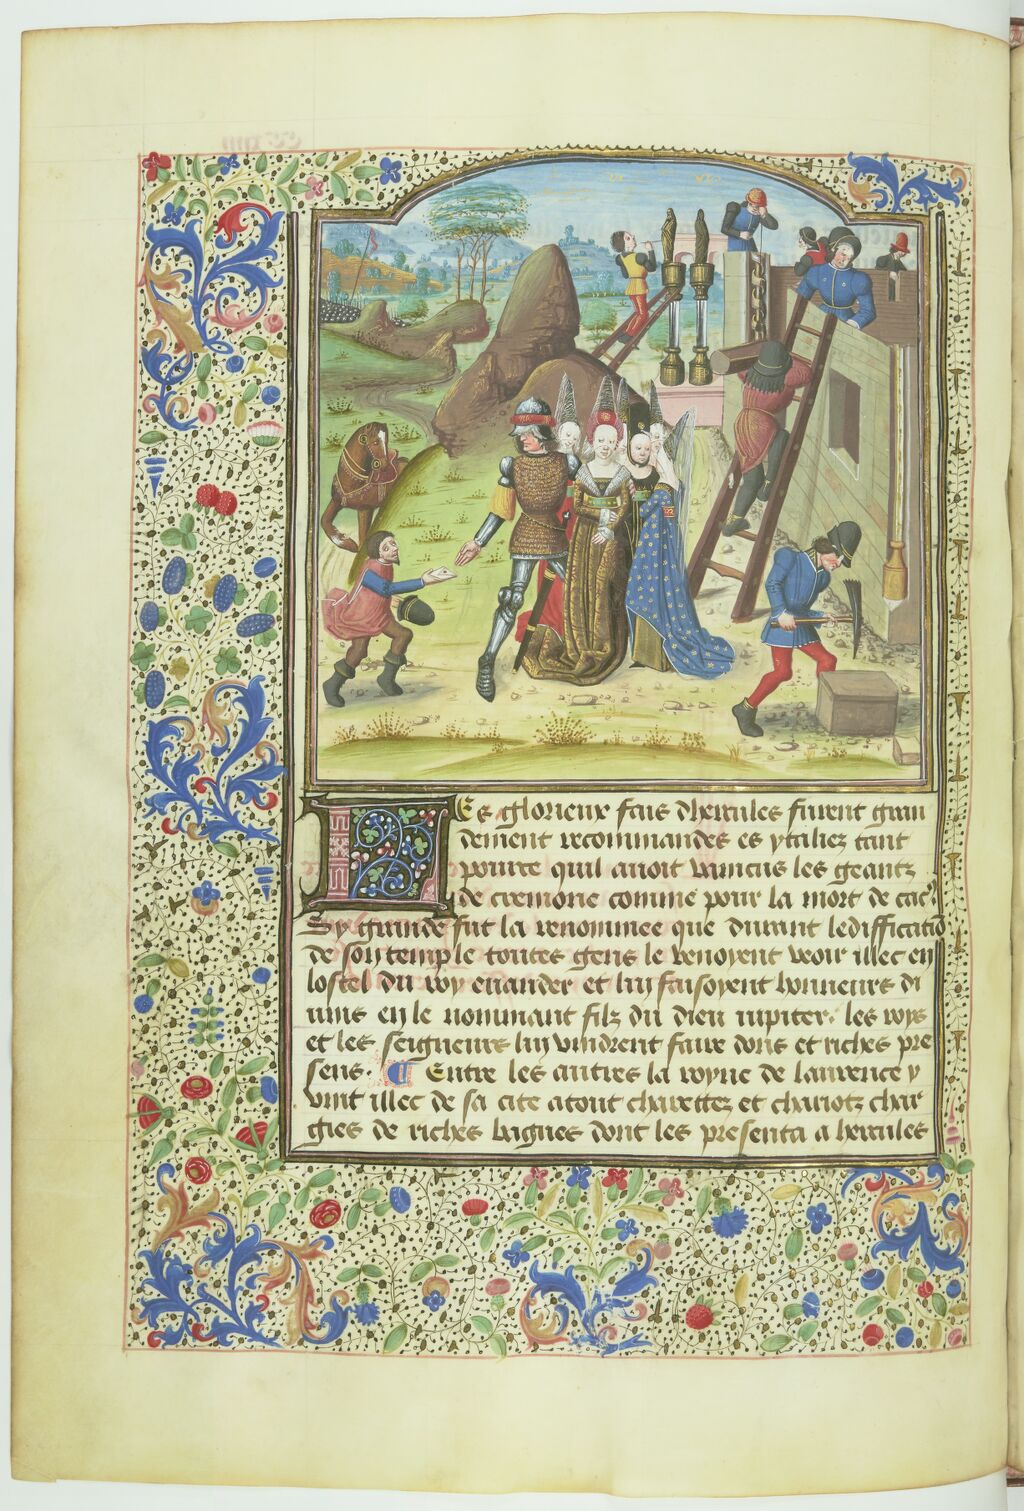 Les glorieux fais dhercules furent gran
dement recommandes es ytaliez tant
pource quil auoit vaincus les geantz
de cremone comme pour la mort de cac9
Sy grande fut la renommee que durant ledifficatiō
de son temple toutes gens le venoyent veoir illec en
lostel du roy euander et luy faisoyent honneurs di
uins en le nommant filz du dieu iupiter. les roys
et les seigneurs luy vindrent faire dons et riches pre
sens. ¶ Entre les autres la royne de laurence y
vint illec de sa cite atout charettez et chariotz char
gies de riches bagues dont les presenta a hercules